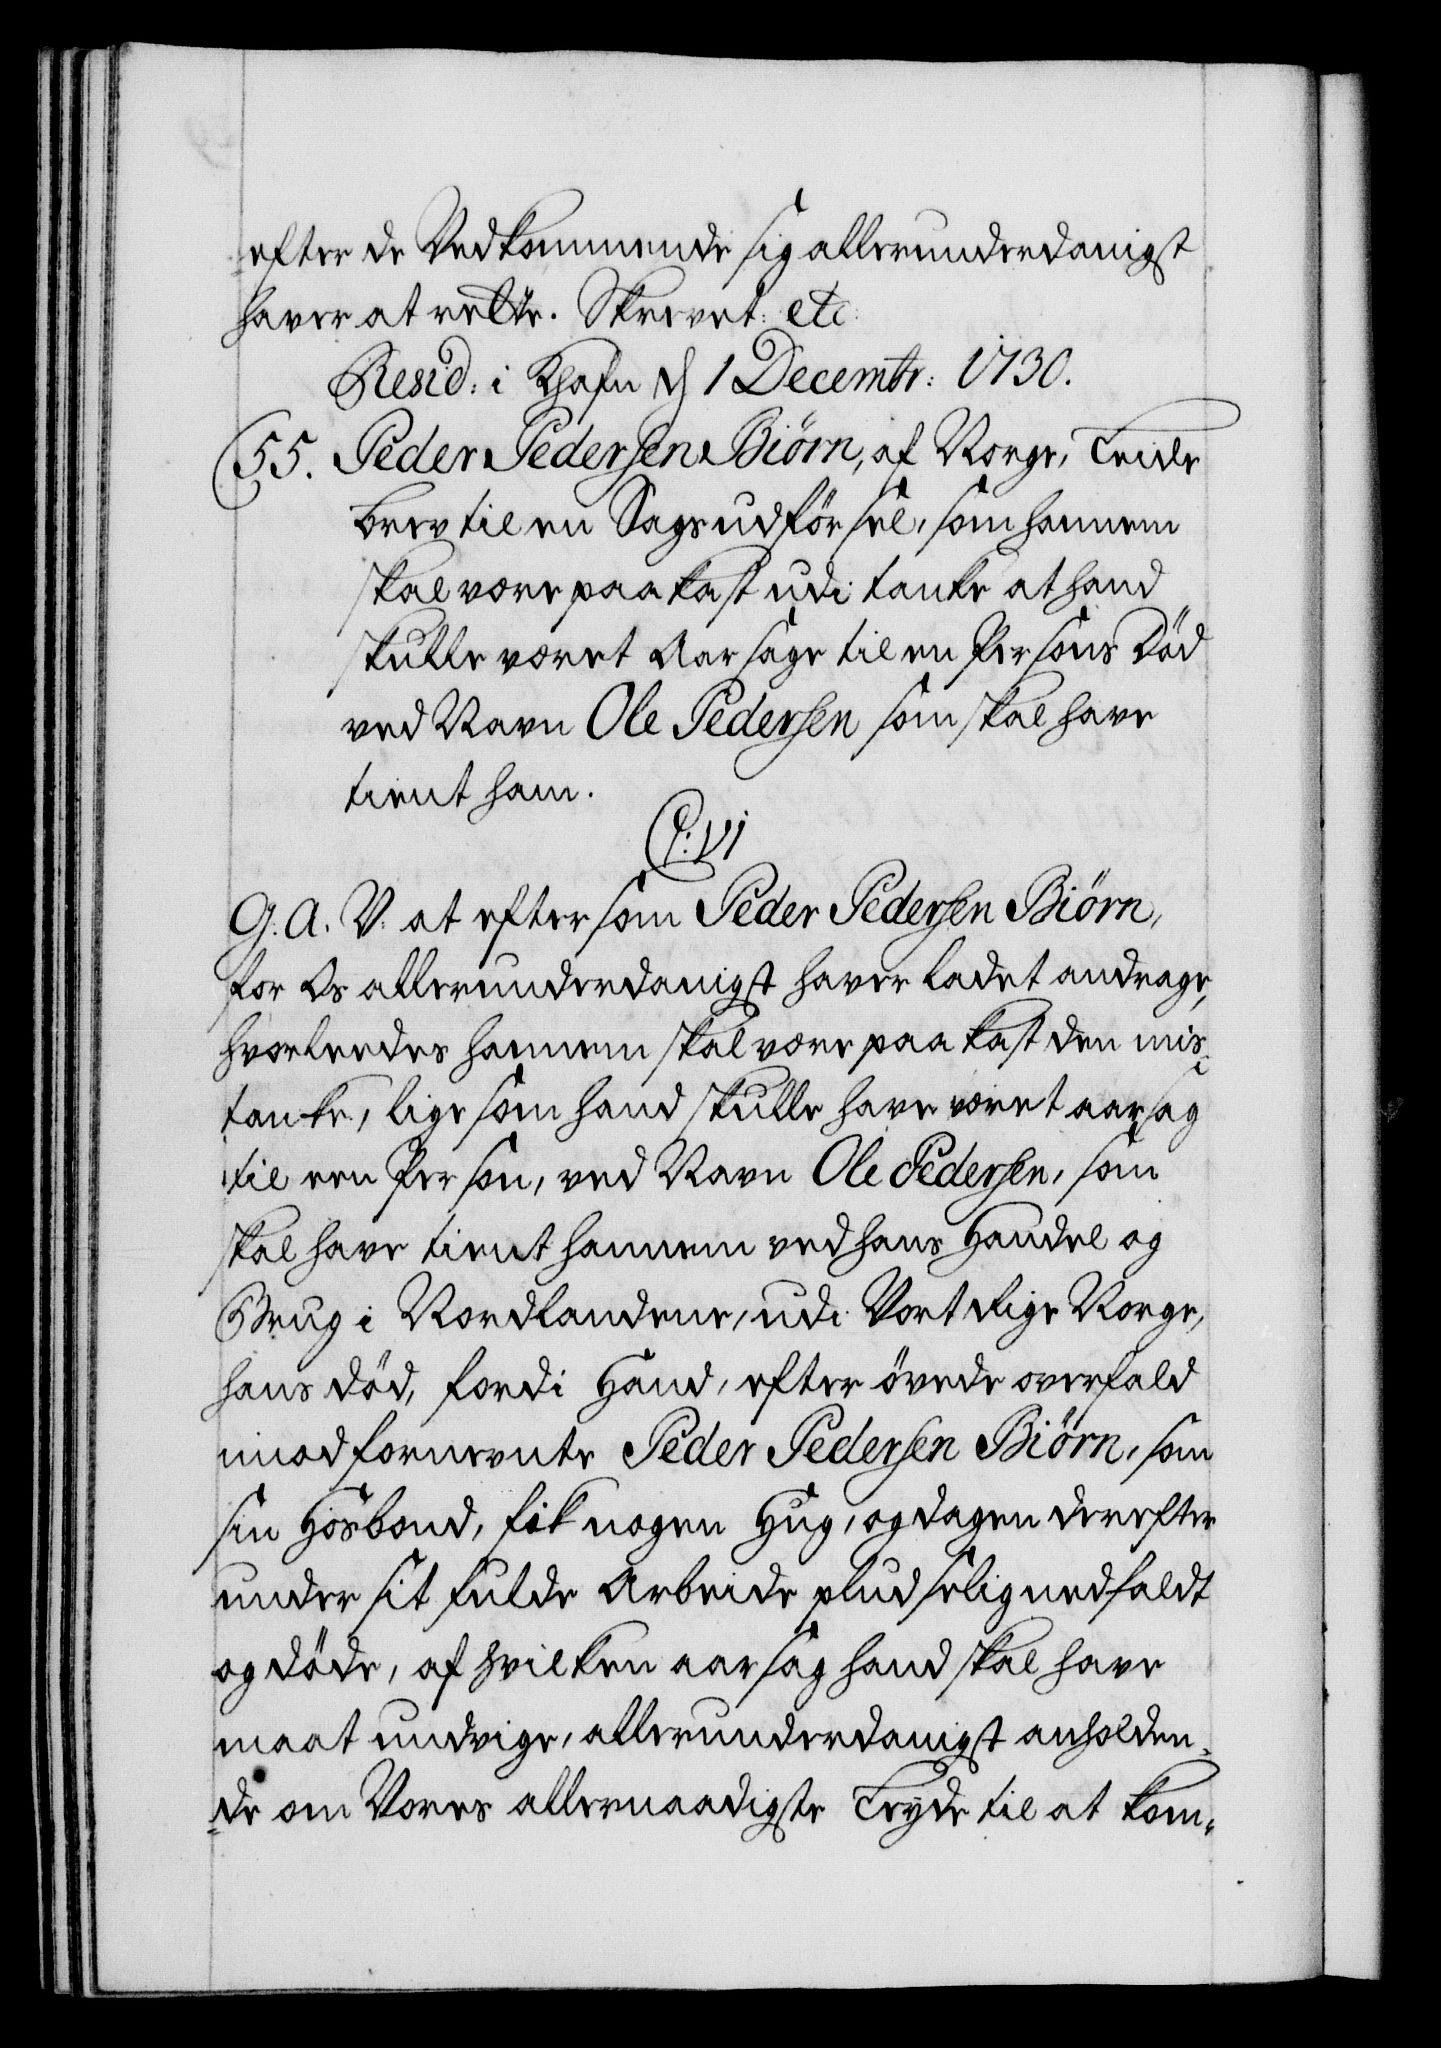 efter de Vedkommende sig allerunderdanigst
haver at rette. Skrevet: etc:
Resid: i Khafn d 1 Decembr: 1730.
55. Peder Pedersen Biörn, af Norge, Leide
brev til en Sags udförsel, som hannem
skal være paakast udi tanke at hand
skulle været Aarsage til en Persons Död
ved Navn Ole Pedersen som skal have
tient ham.
C: VI
G. A. V. at eftersom Peder Pedersen Biörn,
for Os allerunderdanigst haver ladet andrage,
hvorledes hannem skal være paakast den mis-
tanke, lige som hand skulle have været aarsag
til een Person, ved Navn Ole Pedersen, som
skal have tient hannem ved hans Handel og
Brug i Nordlandene, udi Vort Rige Norge,
hans död, fordi Hand, efter övede overfald
imod fornevnte Peder Pedersen Biörn, som
sin Hosbond, fik nogen Hug, og dagen derefter
under sit fulde Arbeide pludselig nedfaldt
og döde, af hvilken aarsag hand skal have
maat undvige, allerunderdanigst anholden-
de om Vores allernaadigste Leyde til at kom-